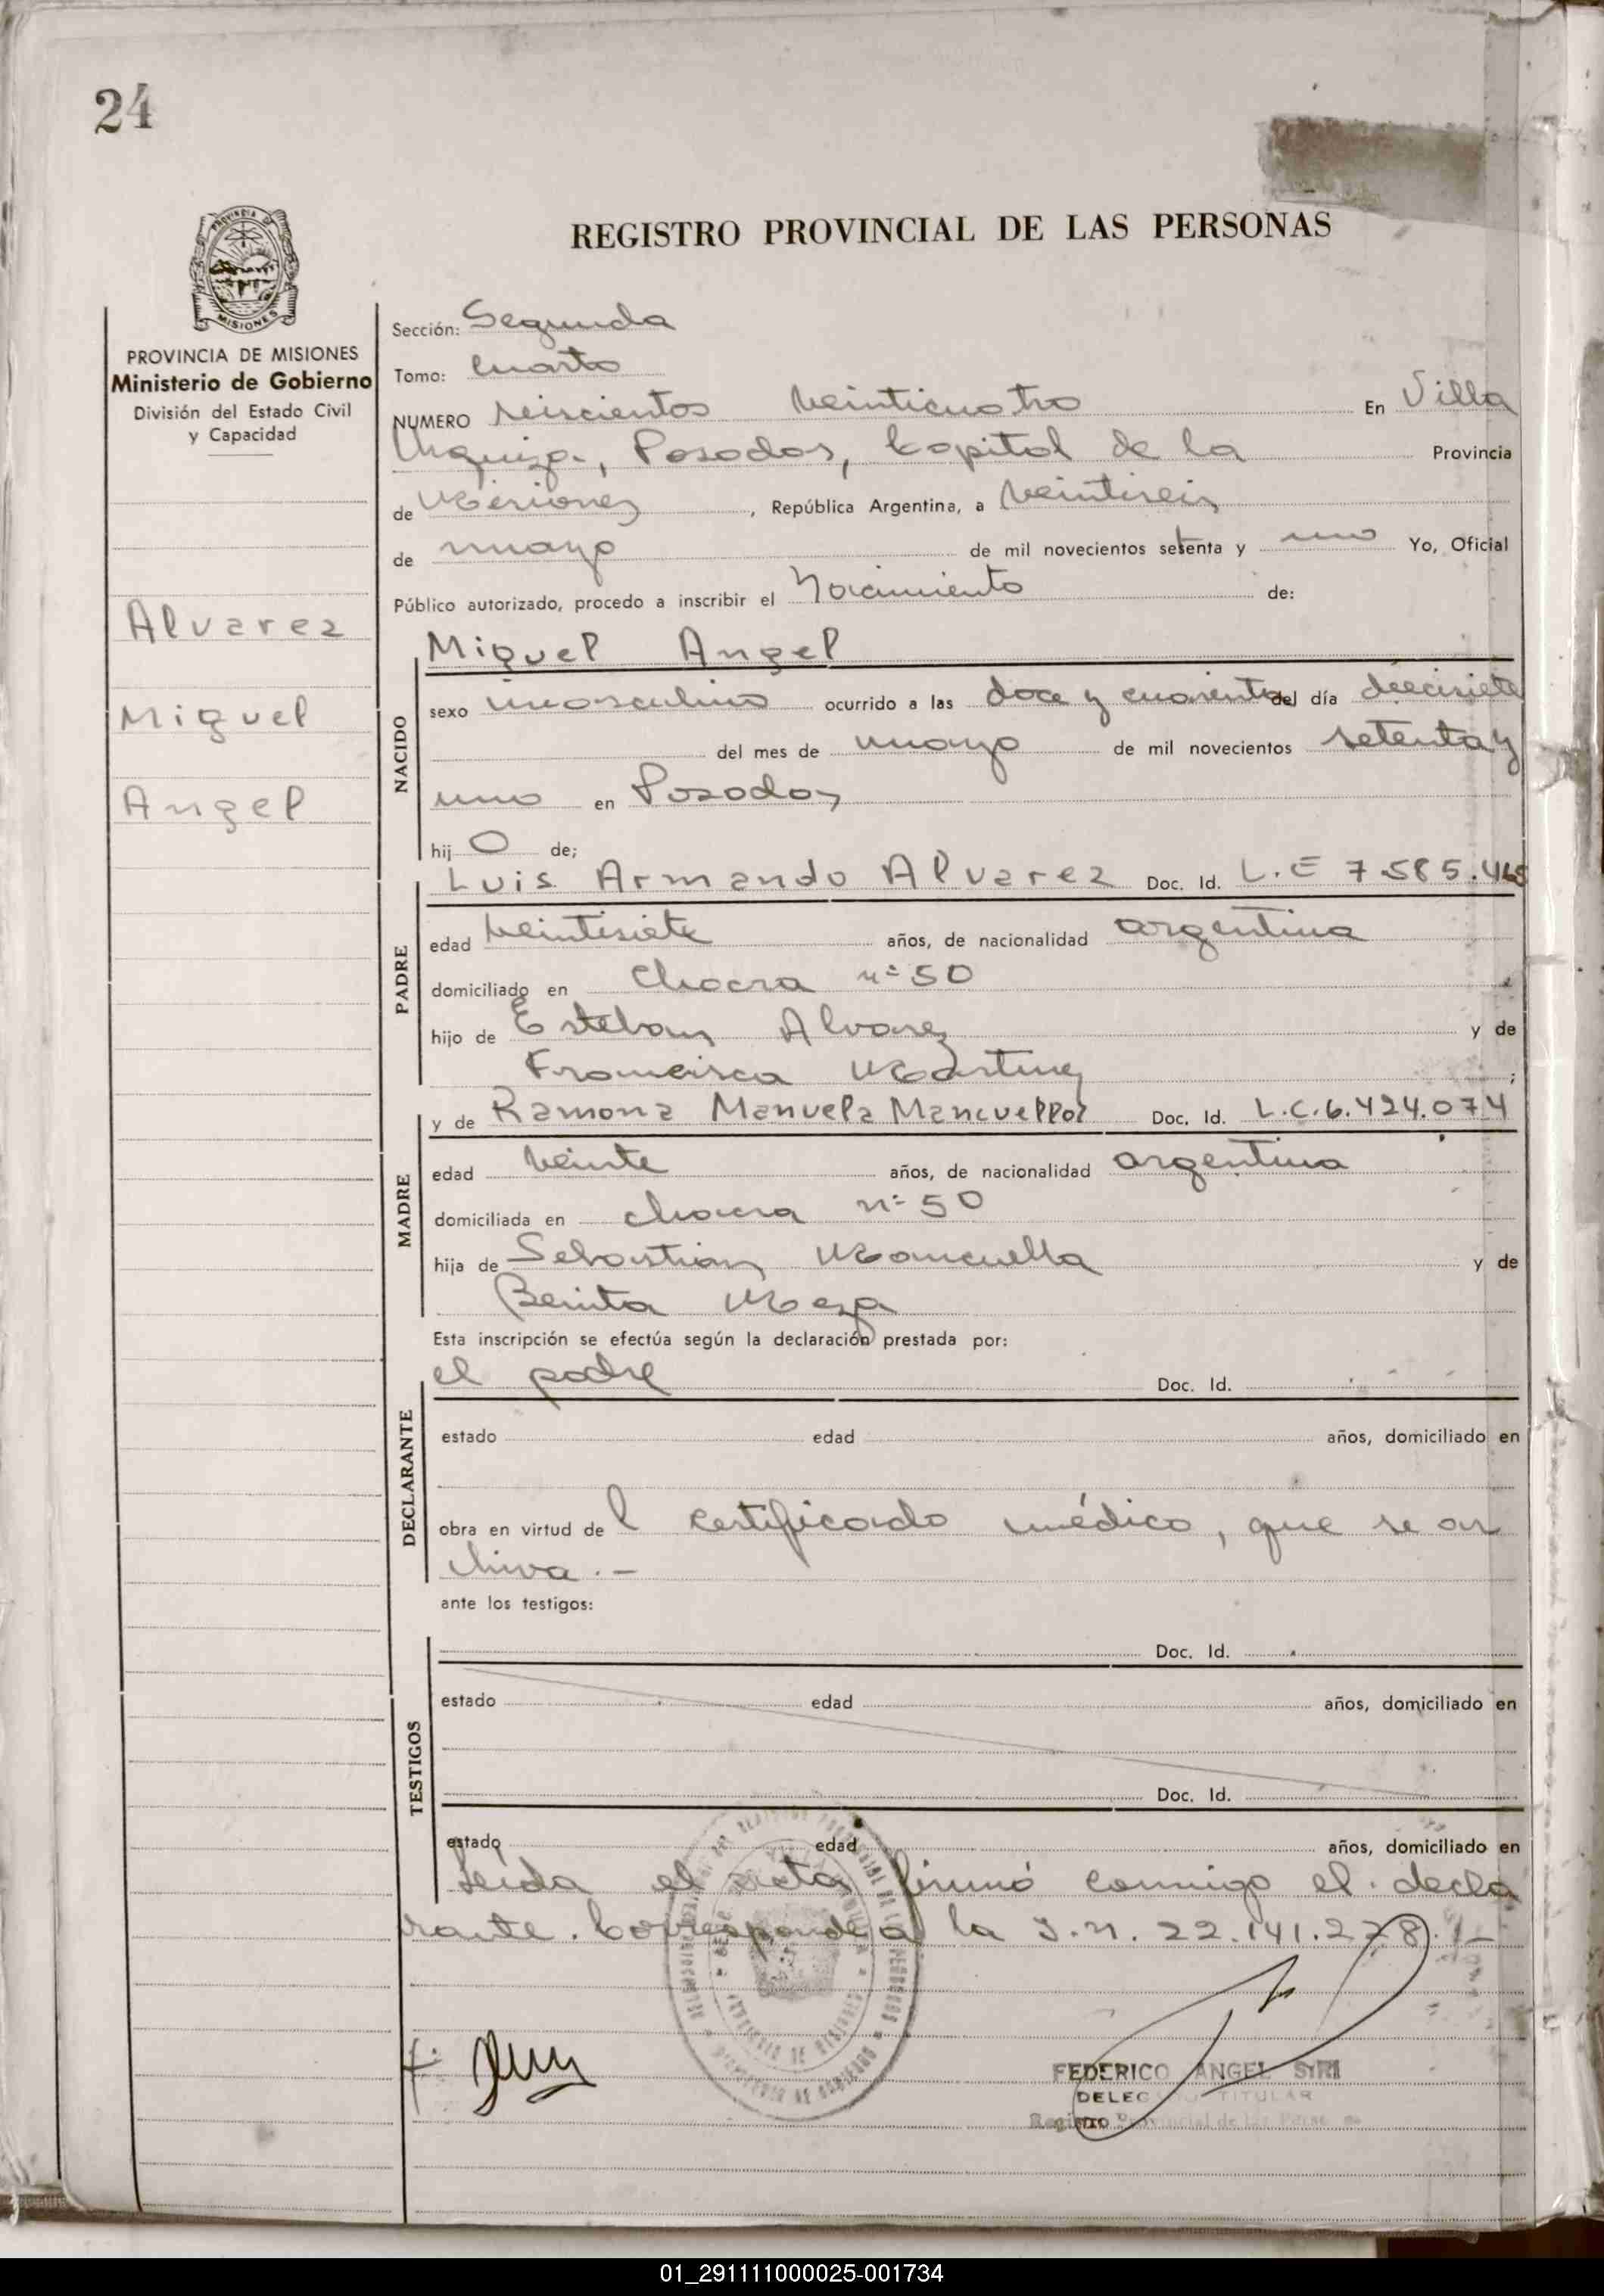 24
REGISTRO PROVINCIAL DE LAS PERSONAS
PROVINCIA DE MISIONES
MISIONES
PROVINCIA DE MISIONES
Ministerio de Gobierno
División del Estado Civil
y Capacidad
Alvarez
Miguel
Angel
Sección: Segunda
Tomo: Cuarto
NUMERO seiscientos veinticuatro En Villa
Urquiza, Posadas, Capital de la Provincia
de Misiones, República Argentina, a veintiseis
de mayo de mil novecientos setenta y uno Yo, Oficial
Público autorizado, procedo a inscribir el Nacimiento de:
Miguel Angel
NACIDO
sexo masculino ocurrido a las doce y cuarenta del día diecisiete
del mes de mayo de mil novecientos setenta y
uno en Posadas
hij o de;
Luis Armando Alvarez Doc. Id. L.E 7.585.468
PADRE
edad veintisiete años, de nacionalidad argentina
domiciliado en Chacra nº 50
hijo de Esteban Alvarez y de
Francisca Martinez;
y de Ramona Manuela Mancuello Doc. Id. L.C.6.424.074
MADRE
edad veinte años, de nacionalidad argentina
domiciliada en chacra nº 50
hija de Sebastian Mancuello y de
Benita Meza
Esta inscripción se efectúa según la declaración prestada por:
el padre Doc. Id.
DECLARANTE
estado edad años, domiciliado en
obra en virtud de l certificado médico, que se ar
chiva.-
ante los testigos:
Doc. Id.
TESTIGOS
estado edad años, domiciliado en
Doc. Id.
estado edad años, domiciliado en
Leida el acta firmó conmigo el decla
rante. Corresponde a la I.N. 22.141.278.-
FEDERICO ANGEL SIRI
DELEGADO TITULAR
Registro Provincial de las Personas
01_291111000025-001734